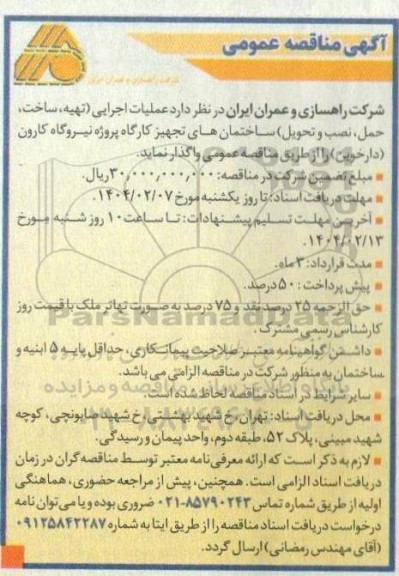 آگهی مناقصه عمومی
شرکت راهسازی و عمران ایران
شرکت راهسازی و عمران ایران در نظر دارد عملیات اجرایی (تهیه، ساخت،
حمل، نصب و تحویل) ساختمان های تجهیز کارگاه پروژه نیروگاه کارون
(دارخوین) را از طریق مناقصه عمومی واگذار نماید.
مبلغ تضمین شرکت در مناقصه: ۳۰,۰۰۰,۰۰۰,۰۰۰ ریال.
مهلت دریافت اسناد: تا روز یکشنبه مورخ ۱۴۰۴/۰۲/۰۷.
آخرین مهلت تسلیم پیشنهادات: تا ساعت ۱۰ روز شنبه مورخ
۱۴۰۴/۰۲/۱۳.
مدت قرارداد: ۳ ماه.
پیش پرداخت: ۵۰ درصد.
حق الزحمه ۲۵ درصد نقد و ۷۵ درصد به صورت تهاتر ملک با قیمت روز
کارشناس رسمی مشترک.
داشتن گواهینامه معتبر صلاحیت پیمانکاری، حداقل پایه ۵ ابنیه و
ساختمان به منظور شرکت در مناقصه الزامی می باشد.
سایر شرایط در اسناد مناقصه لحاظ شده است.
محل دریافت اسناد: تهران، خ شهید بهشتی، خ شهید صابونچی، کوچه
شهید مبینی، پلاک ۵۲، طبقه دوم، واحد پیمان و رسیدگی.
لازم به ذکر است که ارائه معرفی نامه معتبر توسط مناقصه گران در زمان
دریافت اسناد الزامی است. همچنین، پیش از مراجعه حضوری، هماهنگی
اولیه از طریق شماره تماس ۸۵۷۹۰۲۴۳-۰۲۱ ضروری بوده و یا می توان نامه
درخواست دریافت اسناد مناقصه را از طریق ایتا به شماره ۰۹۱۲۵۸۴۲۲۸۷
(آقای مهندس رمضانی) ارسال گردد.
ParsNamadData